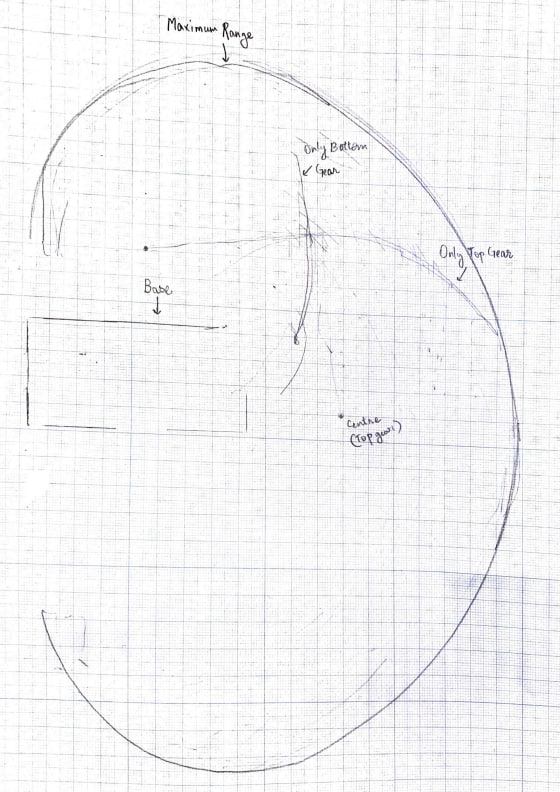 Maximum Range
Only Bottom
Gear
Only Top Gear
Base
Centre
(Top gear)